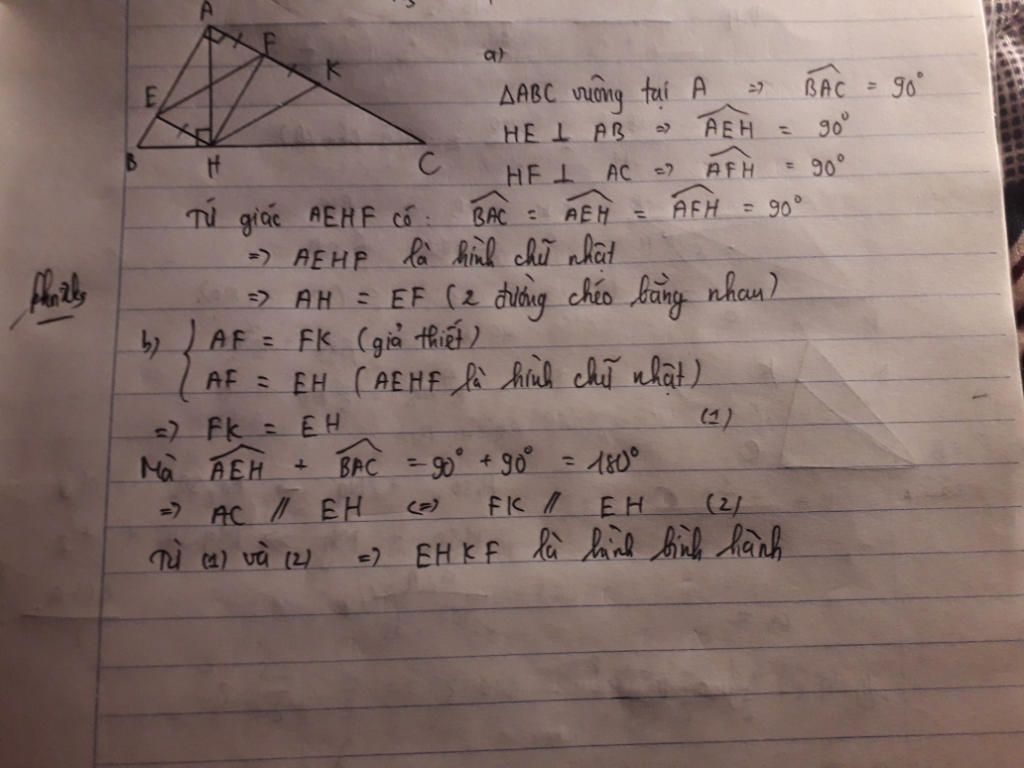 A
F
K
E
B
H
C
a)
ΔABC vuông tại A => \widehat{BAC} = 90°
HE ⊥ AB => \widehat{AEH} = 90°
HF ⊥ AC => \widehat{AFH} = 90°
Tứ giác AEHF có: \widehat{BAC} = \widehat{AEH} = \widehat{AFH} = 90°
=> AEHF là hình chữ nhật
=> AH = EF (2 đường chéo bằng nhau)
b) { AF = FK (giả thiết)
AF = EH (AEHF là hình chữ nhật)
=> FK = EH (1)
Mà \widehat{AEH} + \widehat{BAC} = 90° + 90° = 180°
=> AC // EH <=> FK // EH (2)
Từ (1) và (2) => EHKF là hình bình hành